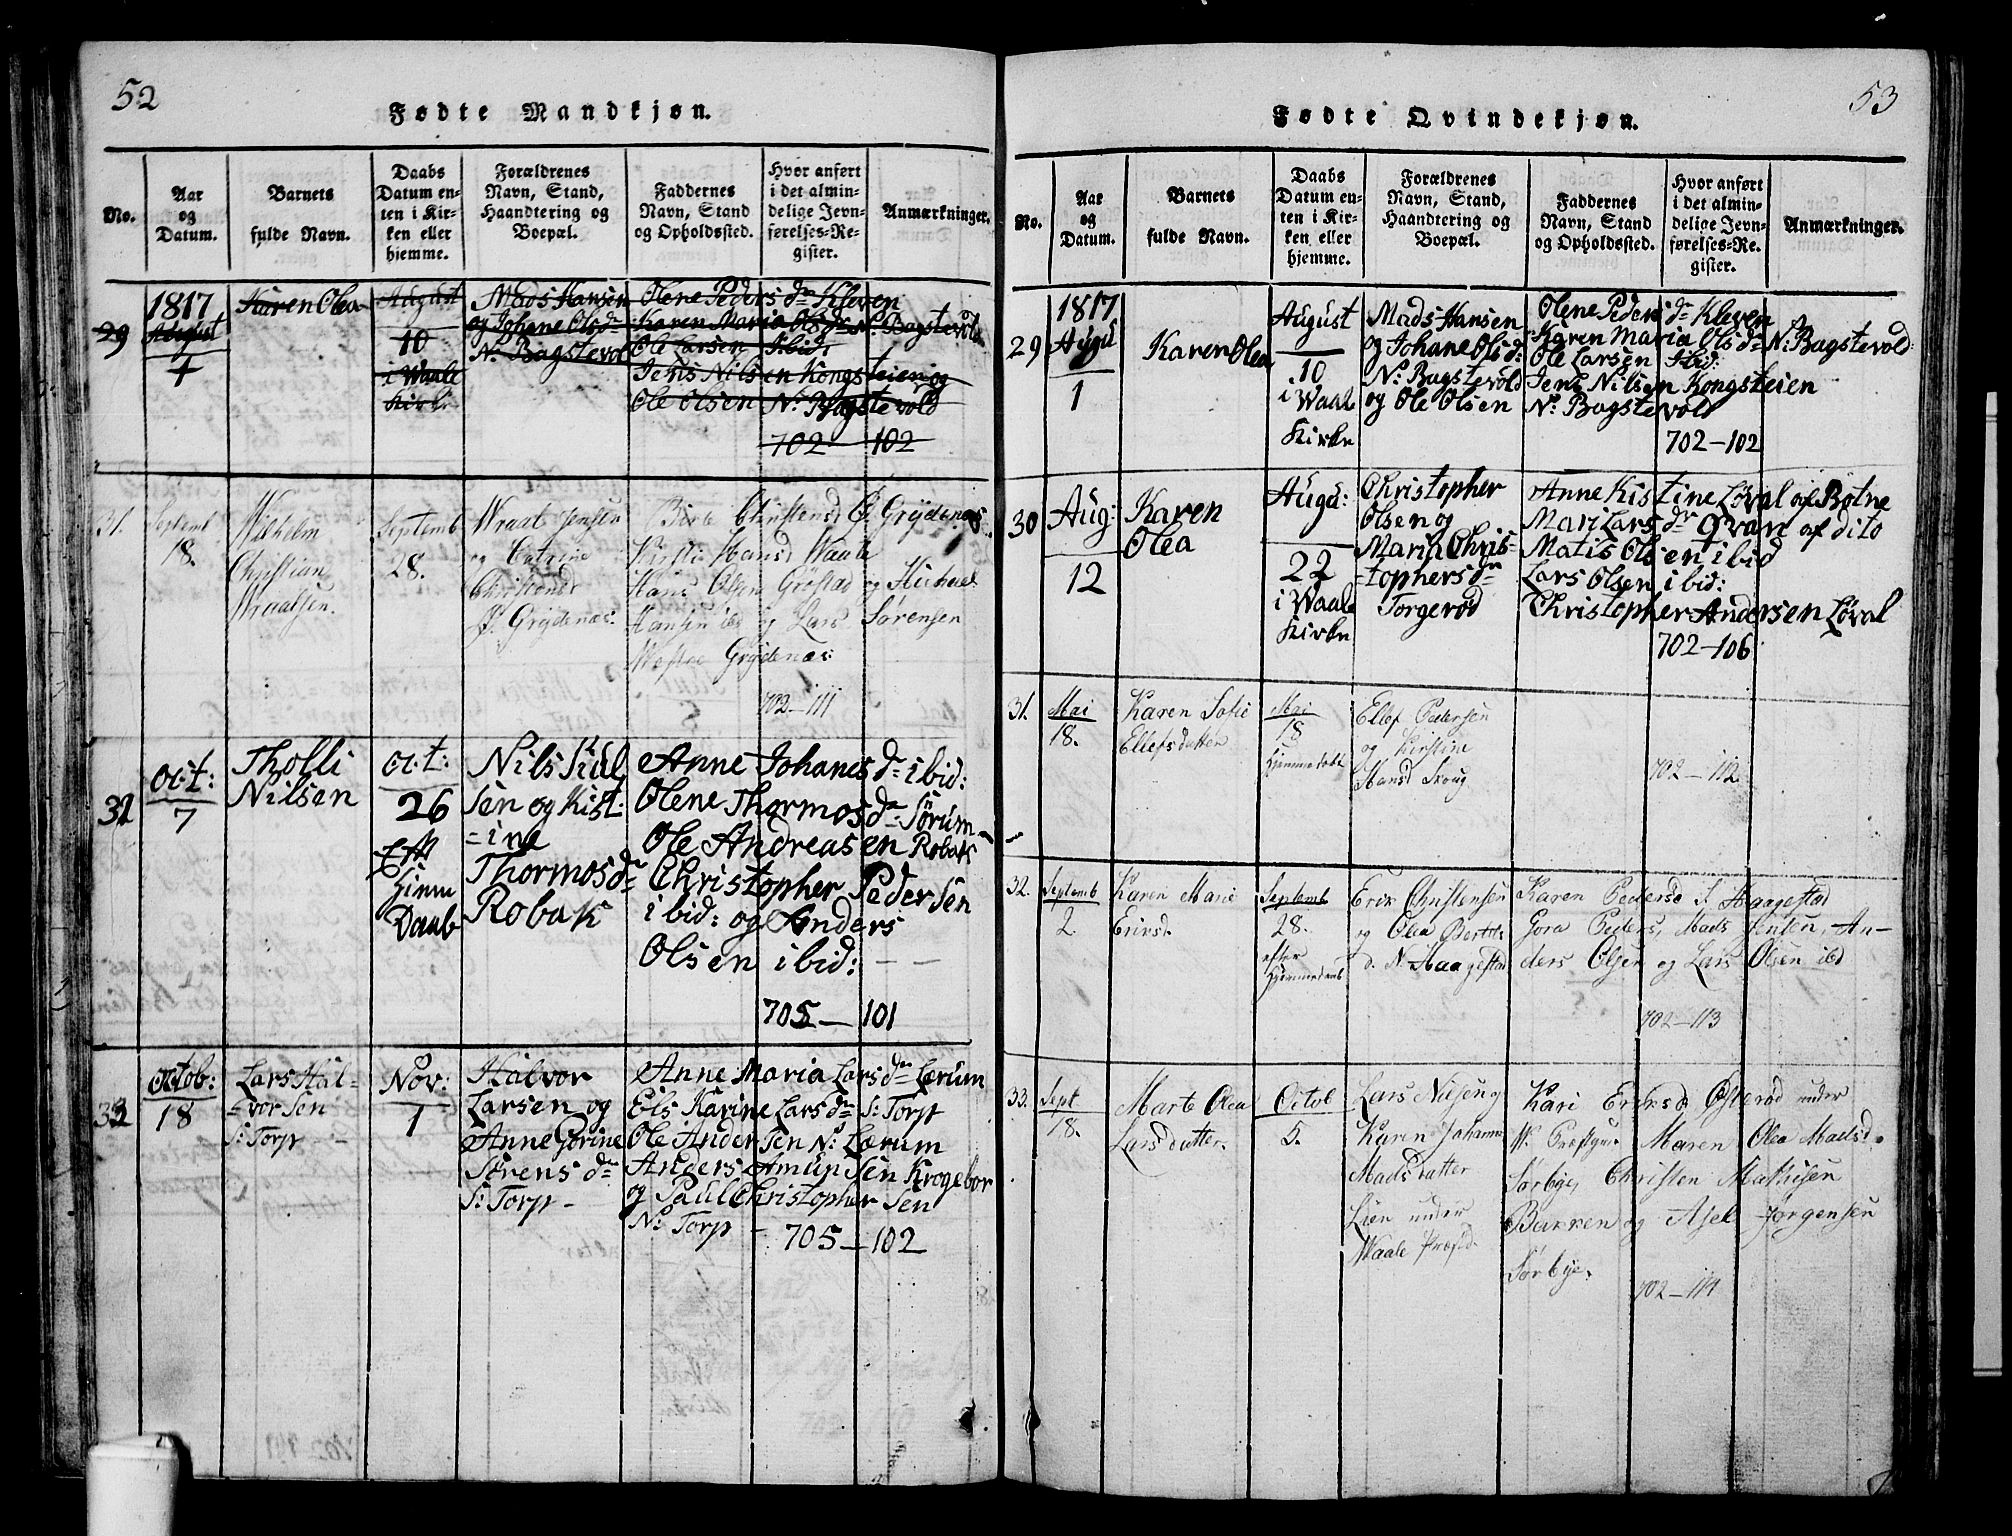 52
Fødte Mandkjøn.
No.
Aar og Datum.
Barnets fulde Navn.
Daabs Datum enten i Kirken eller hjemme.
Forældrenes Navn, Stand, Haandtering og Boepæl.
Faddernes Navn, Stand og Opholdssted.
Hvor anført i det almindelige Jevnførelses-Register.
Anmærkninger.
29
1817
August
4
Karen Olea
August
10
i Waale
Kirke
Mads Hansen
og Johane Olsdr
N: Bagstevol
Olene Peders dr Kleven
Karen Maria Ols dr N: Bagstevold
Ole Larsen Ibid:
Jens Nilsen Kongsteien og
Ole Olsen N: Bagstevold
702 — 102
31.
Septemb
18.
Wilhelm
Christian
Wraalsen.
Septemb
28.
Wraal Jensen
og Catrine
Christensd
Ø. Grydenæs.
Berte Christensd Ø. Grydenæs
Kirsti Hansd Waale
Hans Olsen Grøstad og Michael
Hansen ibd og Lars Sørensen
Westre Grydenæs:
702—111
32
Oct:
7
Tholli
Nilsen
Oct:
26
Hiem
Daab
Nils Kul
sen og Kist
=ine
Thormosdr
Robak
Anne Johanes dr ibid:
Olene Thormos dr Sørum
Ole Andreasen Robak
Christopher Pedersen
ibid: og Anders
Olsen ibid: — —
705 — 101
33
Octob:
18
Lars Hal=
=vorsen
S: Torp —
Nov:
1
Halvor
Larsen og
Anne Gorine
Sørens dr
S: Torp —
Anne Maria Lars dr Lærum
Els Karine Lars dr S: Torp
Ole Andersen N: Lærum
Anders Amunsen Krogebor
og Paul Christophersen
N: Torp —
705 — 102
53
Fødte Qvindekjøn.
No.
Aar og Datum.
Barnets fulde Navn.
Daabs Datum enten i Kirken eller hjemme.
Forældrenes Navn, Stand, Haandtering og Boepæl.
Faddernes Navn, Stand og Opholdssted.
Hvor anført i det almindelige Jevnførelses-Register.
Anmærkninger.
29
1817
Augu
1
Karen Olea
August
10
i Waale
Kirke
Mads Hansen
og Johane Ols d:
N: Bagstevold
og Ole Olsen
Olene Peders dr Kleven
Karen Maria Ols dr N: Bagstevold:
Ole Larsen Ibid:
Jens Nilsen Kongsteien
N: Bagstevold
702—102
30
Aug:
12
Karen
Olea
Augu:
22
i Waale
Kirke
Christopher
Olsen og
Maria Chris=
=tophers dr
Torgerød
Anne Kistine Løval af Botne
Mari Lars dr Qvan af dito
Matis Olsen ibid
Lars Olsen ibid:
Christopher Andersen Løval
702—106
31.
Mai
18.
Karen Sofie
Ellefsdatter
Mai
18
Hjemmedøbt
Ellef Pedersen
og Kirstine
Hansd Skoug
702—112
32.
Septemb
2.
Karen Marie
Eriksd.
Septemb
28.
efter
Hjemmedaab
Erik Christensen
og Olea Bertels
d. N. Haagestad
Karen Pedersd S. Haagestad
Gora Peders, Mads Jensen, An—
ders Olsen og Lars Olsen ibd
702—113
33.
Sept
18.
Marte Olea
Larsdatter.
Octob
5.
Lars Nilsen og
Karen Johanne
Madsdatter
Lien under
Waale Præstd.
Kari Eriksd Østerød under
W. Præstgr. Maren Olea Madsd.
Sørbye, Christen Mathisen
Bakken og Axel Jørgensen
Sørbye.
702—114